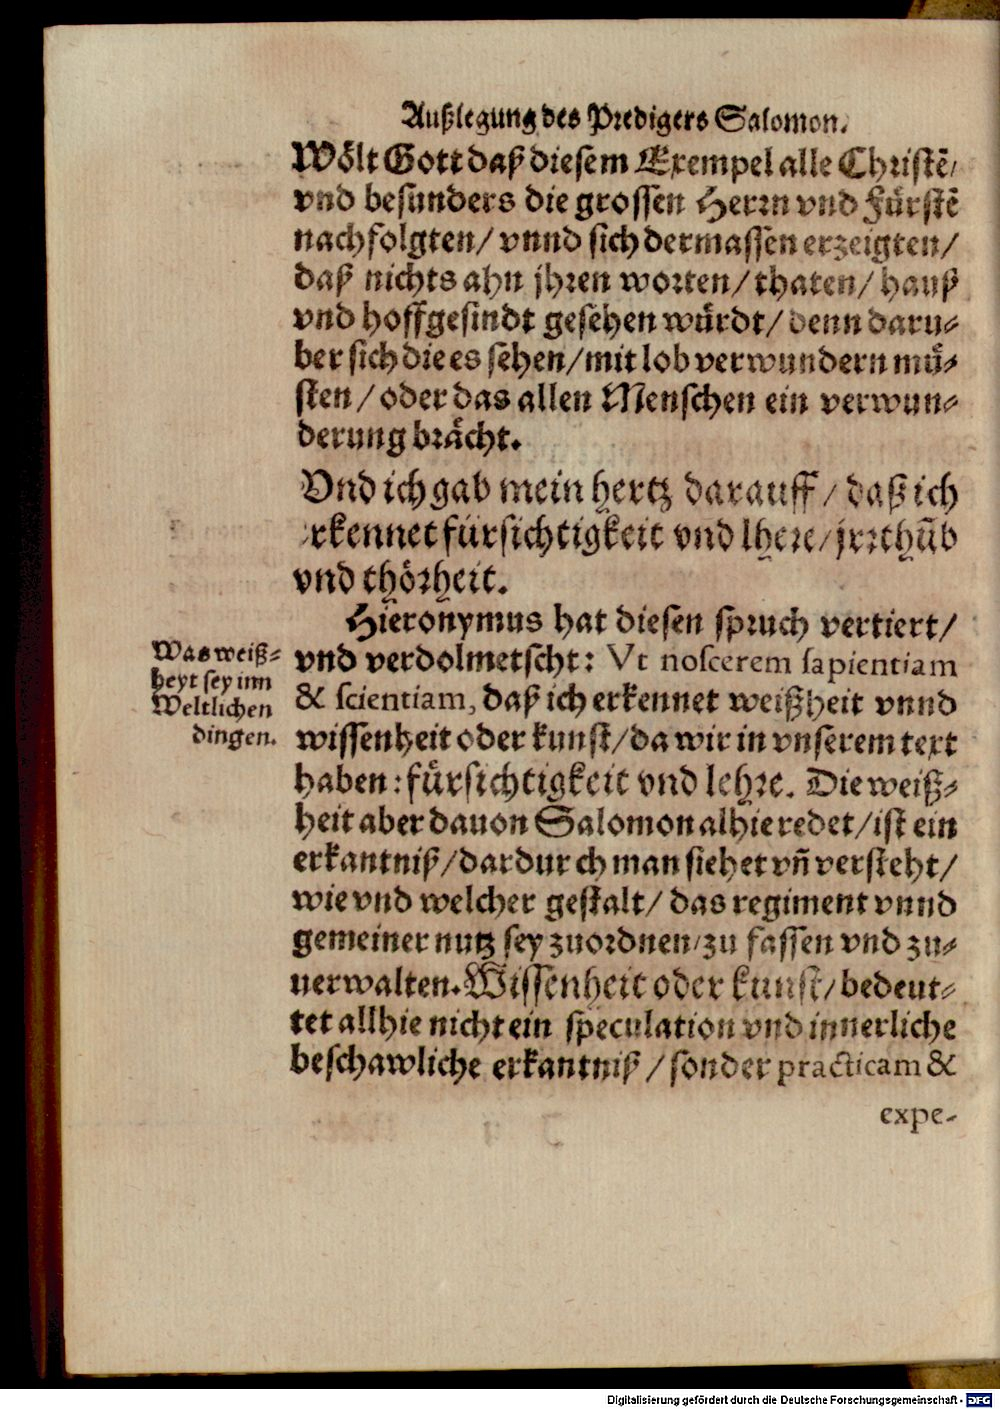 Außlegung des Predigers Salomon.
Wölt Gott daß diesem Exempel alle Christē/
vnd besunders die grossen Herrn vnd Fürstē
nachfolgten/ vnnd sich dermassen erzeigten/
daß nichts ahn jhren worten/ thaten/ hauß
vnd hoffgesindt gesehen würdt/ denn daru-
ber sich die es sehen/ mit lob verwundern mü-
sten/ oder das allen Menschen ein verwun-
derung brächt.
Vnd ich gab mein hertz darauff/ daß ich
erkennet fürsichtigkeit vnd lhere/ jrrthūb
vnd thörheit.
Hieronymus hat diesen spruch vertiert/
Was weiß-
heyt sey inn
Weltlichen
dingen.
vnd verdolmetscht: Vt noscerem sapientiam
& scientiam, daß ich erkennet weißheit vnnd
wissenheit oder kunst/ da wir in vnserem text
haben: fürsichtigkeit vnd lehre. Die weiß-
heit aber dauon Salomon alhie redet/ ist ein
erkantniß/ dardurch man siehet vñ versteht/
wie vnd welcher gestalt/ das regiment vnnd
gemeiner nutz sey zuordnen/ zu fassen vnd zu-
uerwalten. Wissenheit oder kunst/ bedeut-
tet allhie nicht ein speculation vnd innerliche
beschawliche erkantniß/ sonder practicam &
expe-
Digitalisierung gefördert durch die Deutsche Forschungsgemeinschaft - DFG